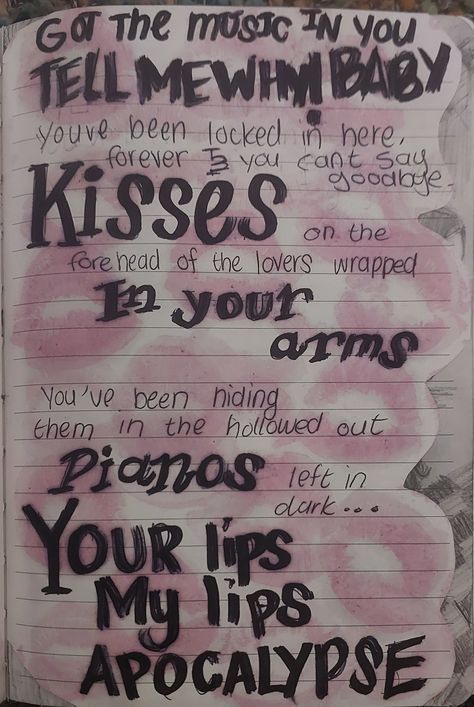 GOT THE MUSIC IN YOU
TELL ME WHY BABY
youve been locked in here,
forever & you cant say
goodbye.
Kisses on the
forehead of the lovers wrapped
In your
arms
You've been hiding
them in the hollowed out
pianos left in
dark...
YOUR lips
My lips
APOCALYPSE